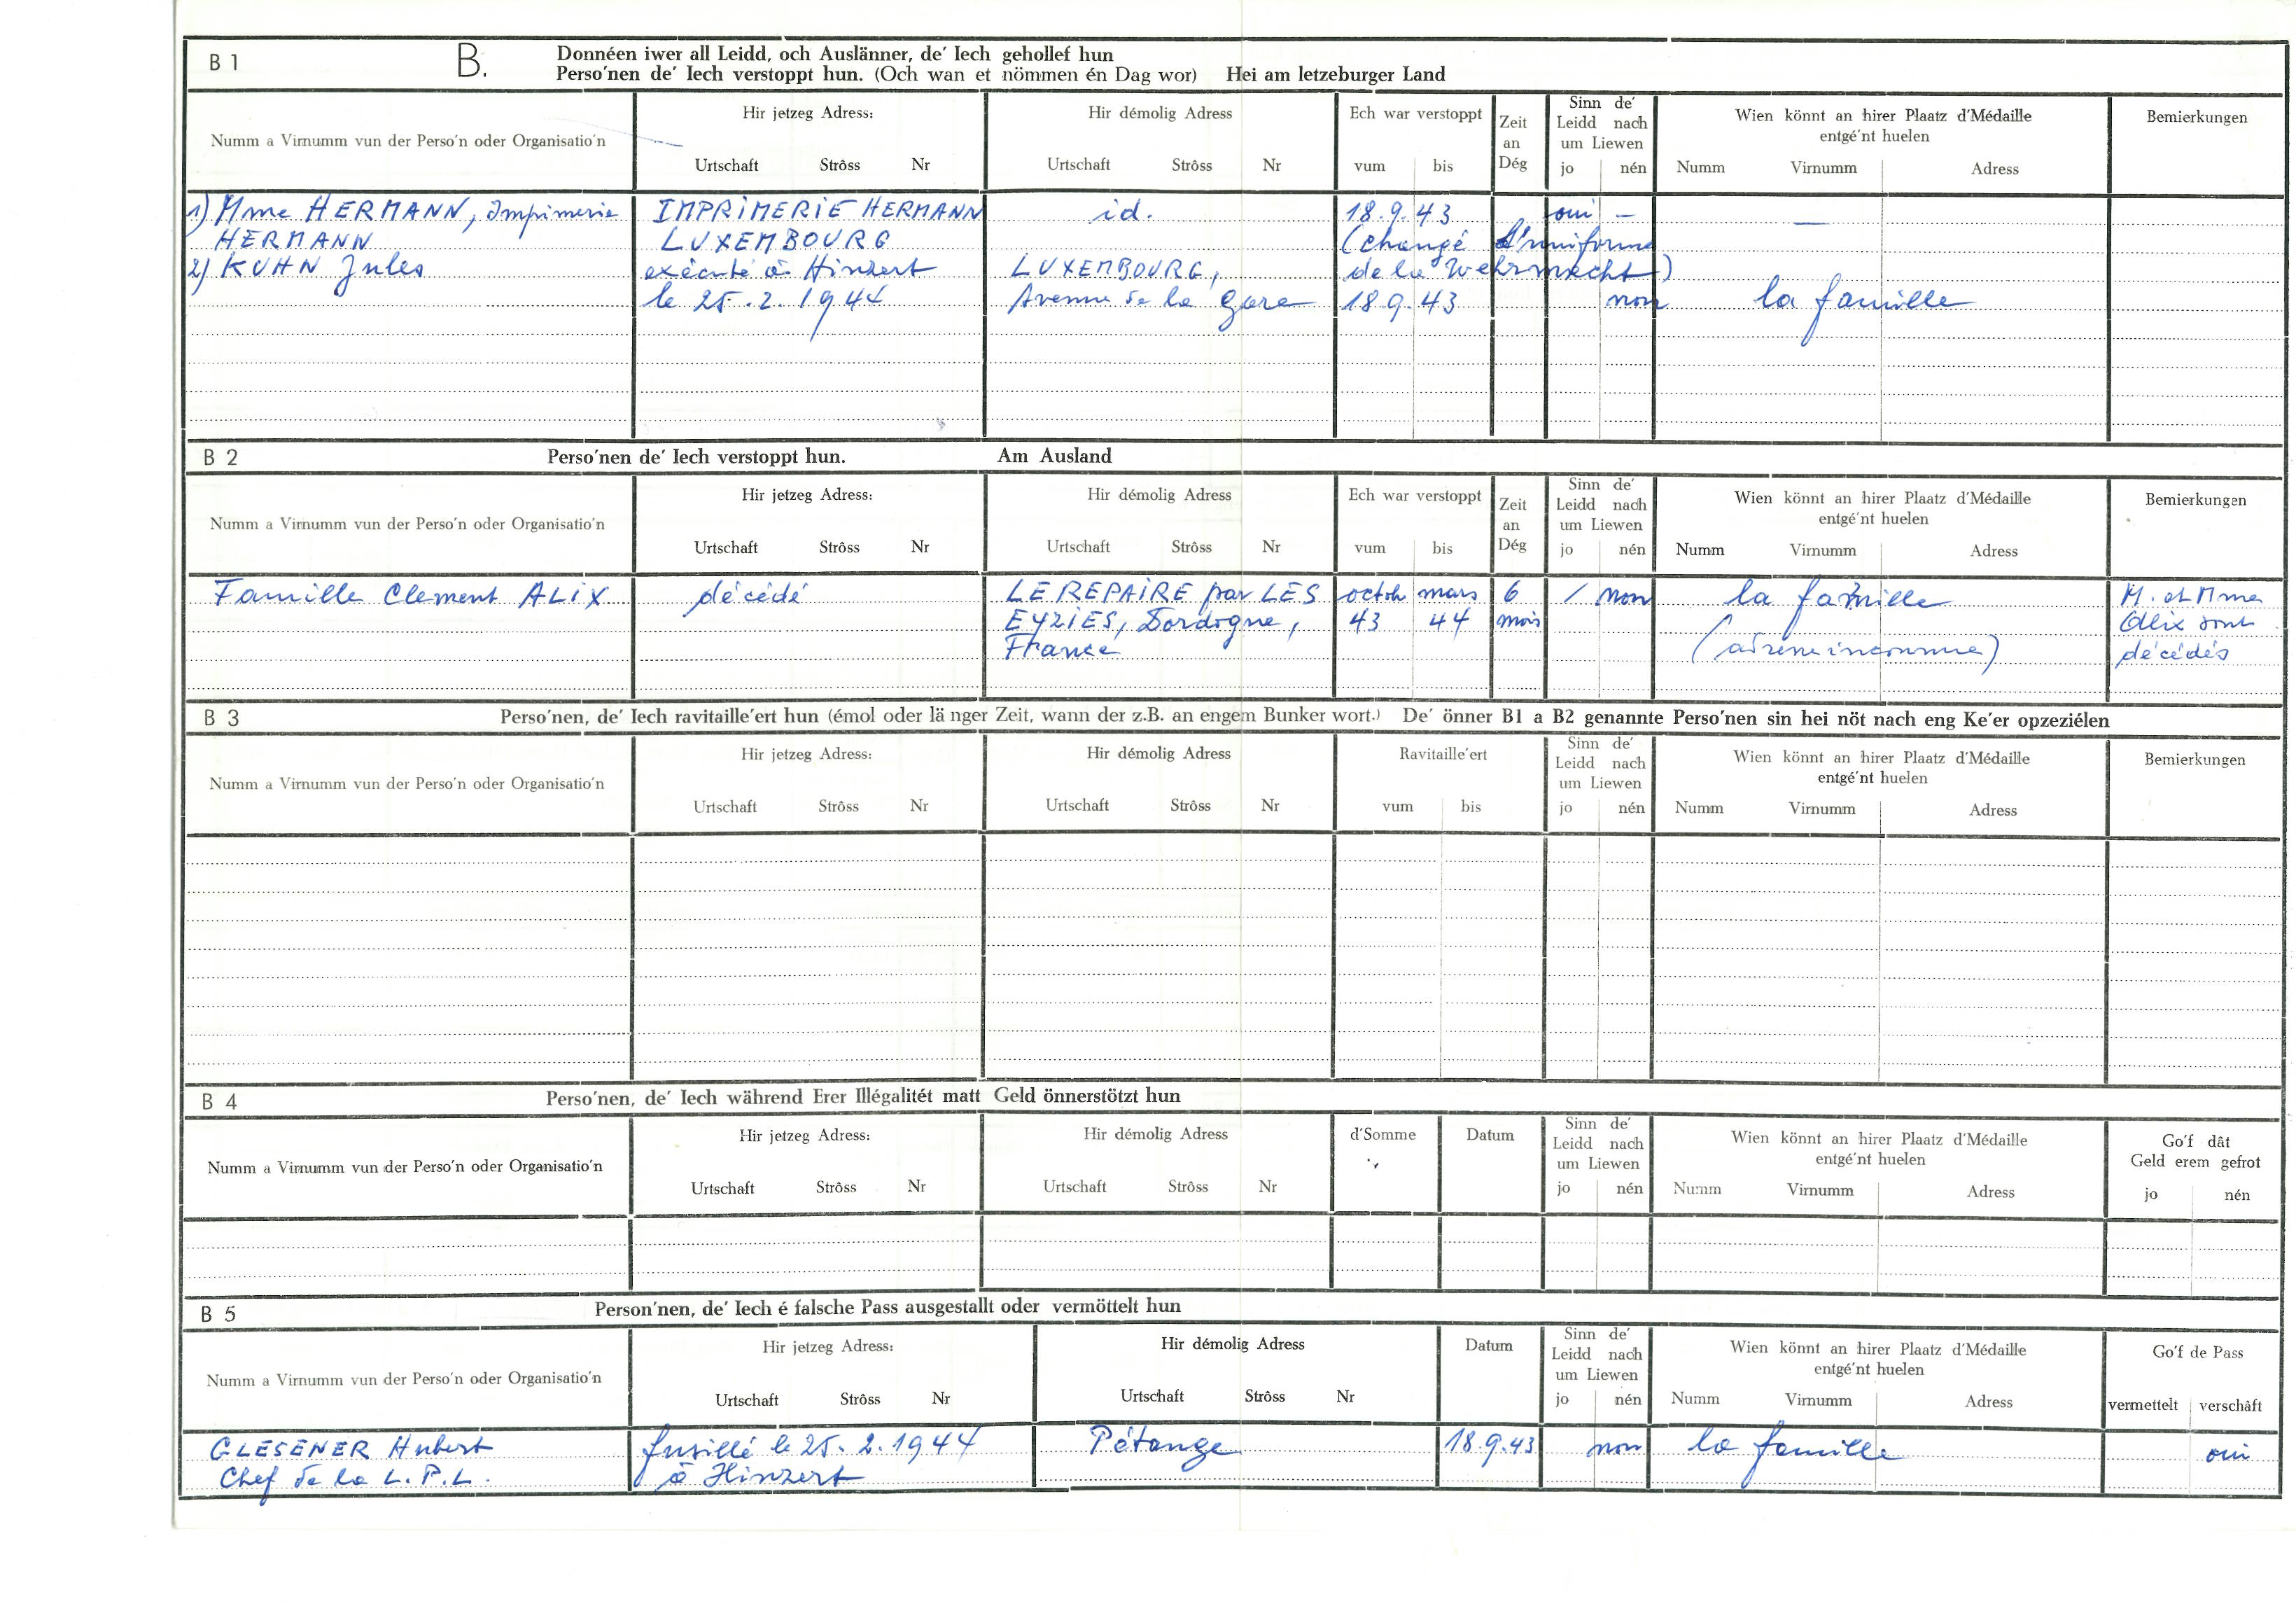 B 1 B. Donnéen iwer all Leidd, och Auslänner, de' Iech gehollef hun
Perso'nen de' Iech verstoppt hun. (Och wan et nömmen én Dag wor) Hei am letzeburger Land
Numm a Virnumm vun der Perso'n oder Organisatio'n
Hir jetzeg Adress:
Urtschaft Strôss Nr
Hir démolig Adress
Urtschaft Strôss Nr
Ech war verstoppt
vum bis
Zeit
an
Dég
Sinn de'
Leidd nach
um Liewen
jo nén
Wien könnt an hirer Plaatz d'Médaille
entgé'nt huelen
Numm Virnumm Adress
Bemierkungen
1) Mme HERMANN, Imprimerie IMPRIMERIE HERMANN id. 18.9.43 oui – —
HERMANN LUXEMBOURG (changé d'uniforme
2) KUHN Jules exécuté à Hinzert LUXEMBOURG, de la Wehrmacht)
le 25.2.1944 Avenue de la Gare 18 9.43 non la famille
B 2 Perso'nen de' Iech verstoppt hun. Am Ausland
Numm a Virnumm vun der Perso'n oder Organisatio'n
Hir jetzeg Adress:
Urtschaft Strôss Nr
Hir démolig Adress
Urtschaft Strôss Nr
Ech war verstoppt
vum bis
Zeit
an
Dég
Sinn de'
Leidd nach
um Liewen
jo nén
Wien könnt an hirer Plaatz d'Médaille
entgé'nt huelen
Numm Virnumm Adress
Bemierkungen
Famille Clement ALIX décédé LE REPAIRE par LES octob mars 6 / non la famille M. et Mme
EYZIES, Dordogne, 43 44 mois Alix sont
France (adresse inconnue) décédés
B 3 Perso'nen, de' Iech ravitaille'ert hun (émol oder lä nger Zeit, wann der z.B. an engem Bunker wort.) De' önner B1 a B2 genannte Perso'nen sin hei nöt nach eng Ke'er opzeziélen
Numm a Virnumm vun der Perso'n oder Organisatio'n
Hir jetzeg Adress:
Urtschaft Strôss Nr
Hir démolig Adress
Urtschaft Strôss Nr
Ravitaille'ert
vum bis
Sinn de'
Leidd nach
um Liewen
jo nén
Wien könnt an hirer Plaatz d'Médaille
entgé'nt huelen
Numm Virnumm Adress
Bemierkungen
B 4 Perso'nen, de' Iech während Erer Illégalitét matt Geld önnerstötzt hun
Numm a Virnumm vun der Perso'n oder Organisatio'n
Hir jetzeg Adress:
Urtschaft Strôss Nr
Hir démolig Adress
Urtschaft Strôss Nr
d'Somme
Datum
Sinn de'
Leidd nach
um Liewen
jo nén
Wien könnt an hirer Plaatz d'Médaille
entgé'nt huelen
Numm Virnumm Adress
Go'f dât
Geld erem gefrot
jo nén
B 5 Person'nen, de' Iech é falsche Pass ausgestallt oder vermöttelt hun
Numm a Virnumm vun der Perso'n oder Organisatio'n
Hir jetzeg Adress:
Urtschaft Strôss Nr
Hir démolig Adress
Urtschaft Strôss Nr
Datum
Sinn de'
Leidd nach
um Liewen
jo nén
Wien könnt an hirer Plaatz d'Médaille
entgé'nt huelen
Numm Virnumm Adress
Go'f de Pass
vermettelt verschâft
GLESENER Hubert fusillé le 25.2.1944 Pétange 18.9.43 non la famille oui
Chef de la L.P.L. à Hinzert